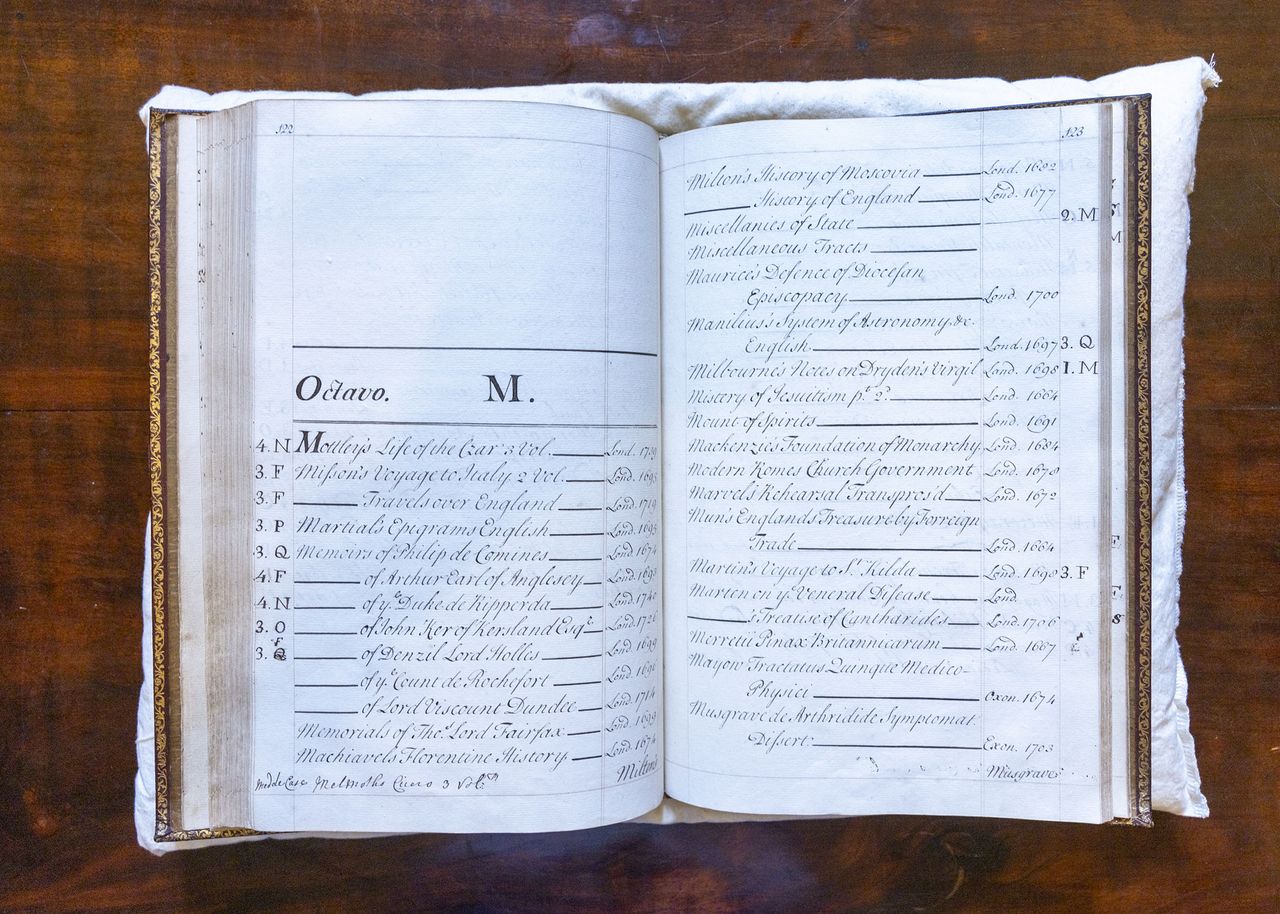 122
Octavo. M.
4. N Mottley's Life of the Czar 3 Vol. Lond. 1739
3. F Misson's Voyage to Italy 2 Vol. Lond. 1695
3. F Travels over England Lond. 1719
3. P Martial's Epigrams English Lond. 1695
3. Q Memoirs of Philip de Comines Lond. 1674
4. F of Arthur Earl of Anglesey Lond. 1693
4. N of yͤ Duke de Ripperda Lond. 1740
3. O of John Ker of Kersland Esqͬ Lond. 1726
F
3. Q of Denzil Lord Holles Lond. 1699
of yͤ Count de Rochefort Lond. 1696
of Lord Viscount Dundee Lond. 1714
Memorials of Thoˢ Lord Fairfax Lond. 1699
Machiavels Florentine History Lond. 1674
Middle Case Melmoths Cicero 3 Vol. Milton's
123
Milton's History of Moscovia Lond. 1682
History of England Lond. 1677
Miscellanies of State 2. M
Miscellaneous Tracts
Maurice's Defence of Diocesan
Episcopacy Lond. 1700
Manilius's System of Astronomy &c.
English Lond. 1697 3. Q
Milbourne's Notes on Dryden's Virgil Lond. 1698 1. M
Mistery of Jesuitism pᵗ 2ᵈ Lond. 1664
Mount of Spirits Lond. 1691
Mackenzie's Foundation of Monarchy Lond. 1684
Modern Romes Church Government Lond. 1678
Marvel's Rehearsal Transpros'd Lond. 1672
Mun's Englands Treasure by Forreign
Trade Lond. 1664
Martin's Voyage to Sᵗ Kilda Lond. 1698 3. F
Marten on yͤ Veneral Disease Lond.
's Treatise of Cantharides Lond. 1706
Merretii Pinax Britannicarum Lond. 1667
Mayow Tractatus Quinque Medico-
Physici Oxon. 1674
Musgrave de Arthridide Symptomat.
Dissert. Exon. 1703
Musgrave